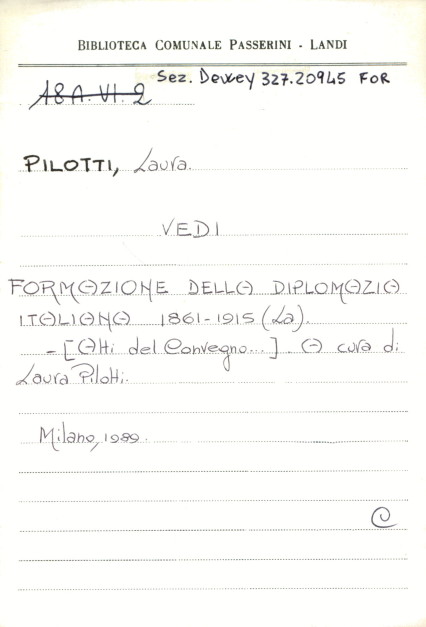 BIBLIOTECA COMUNALE PASSERINI - LANDI
Sez. Dewey 327.20945 FOR
A8A. VI. 2
PILOTTI, Laura.
VEDI
FORMAZIONE DELLA DIPLOMAZIA
ITALIANA 1861-1915 (La).
- [Atti del Convegno...]. A cura di
Laura Pilotti.
Milano, 1989.
C